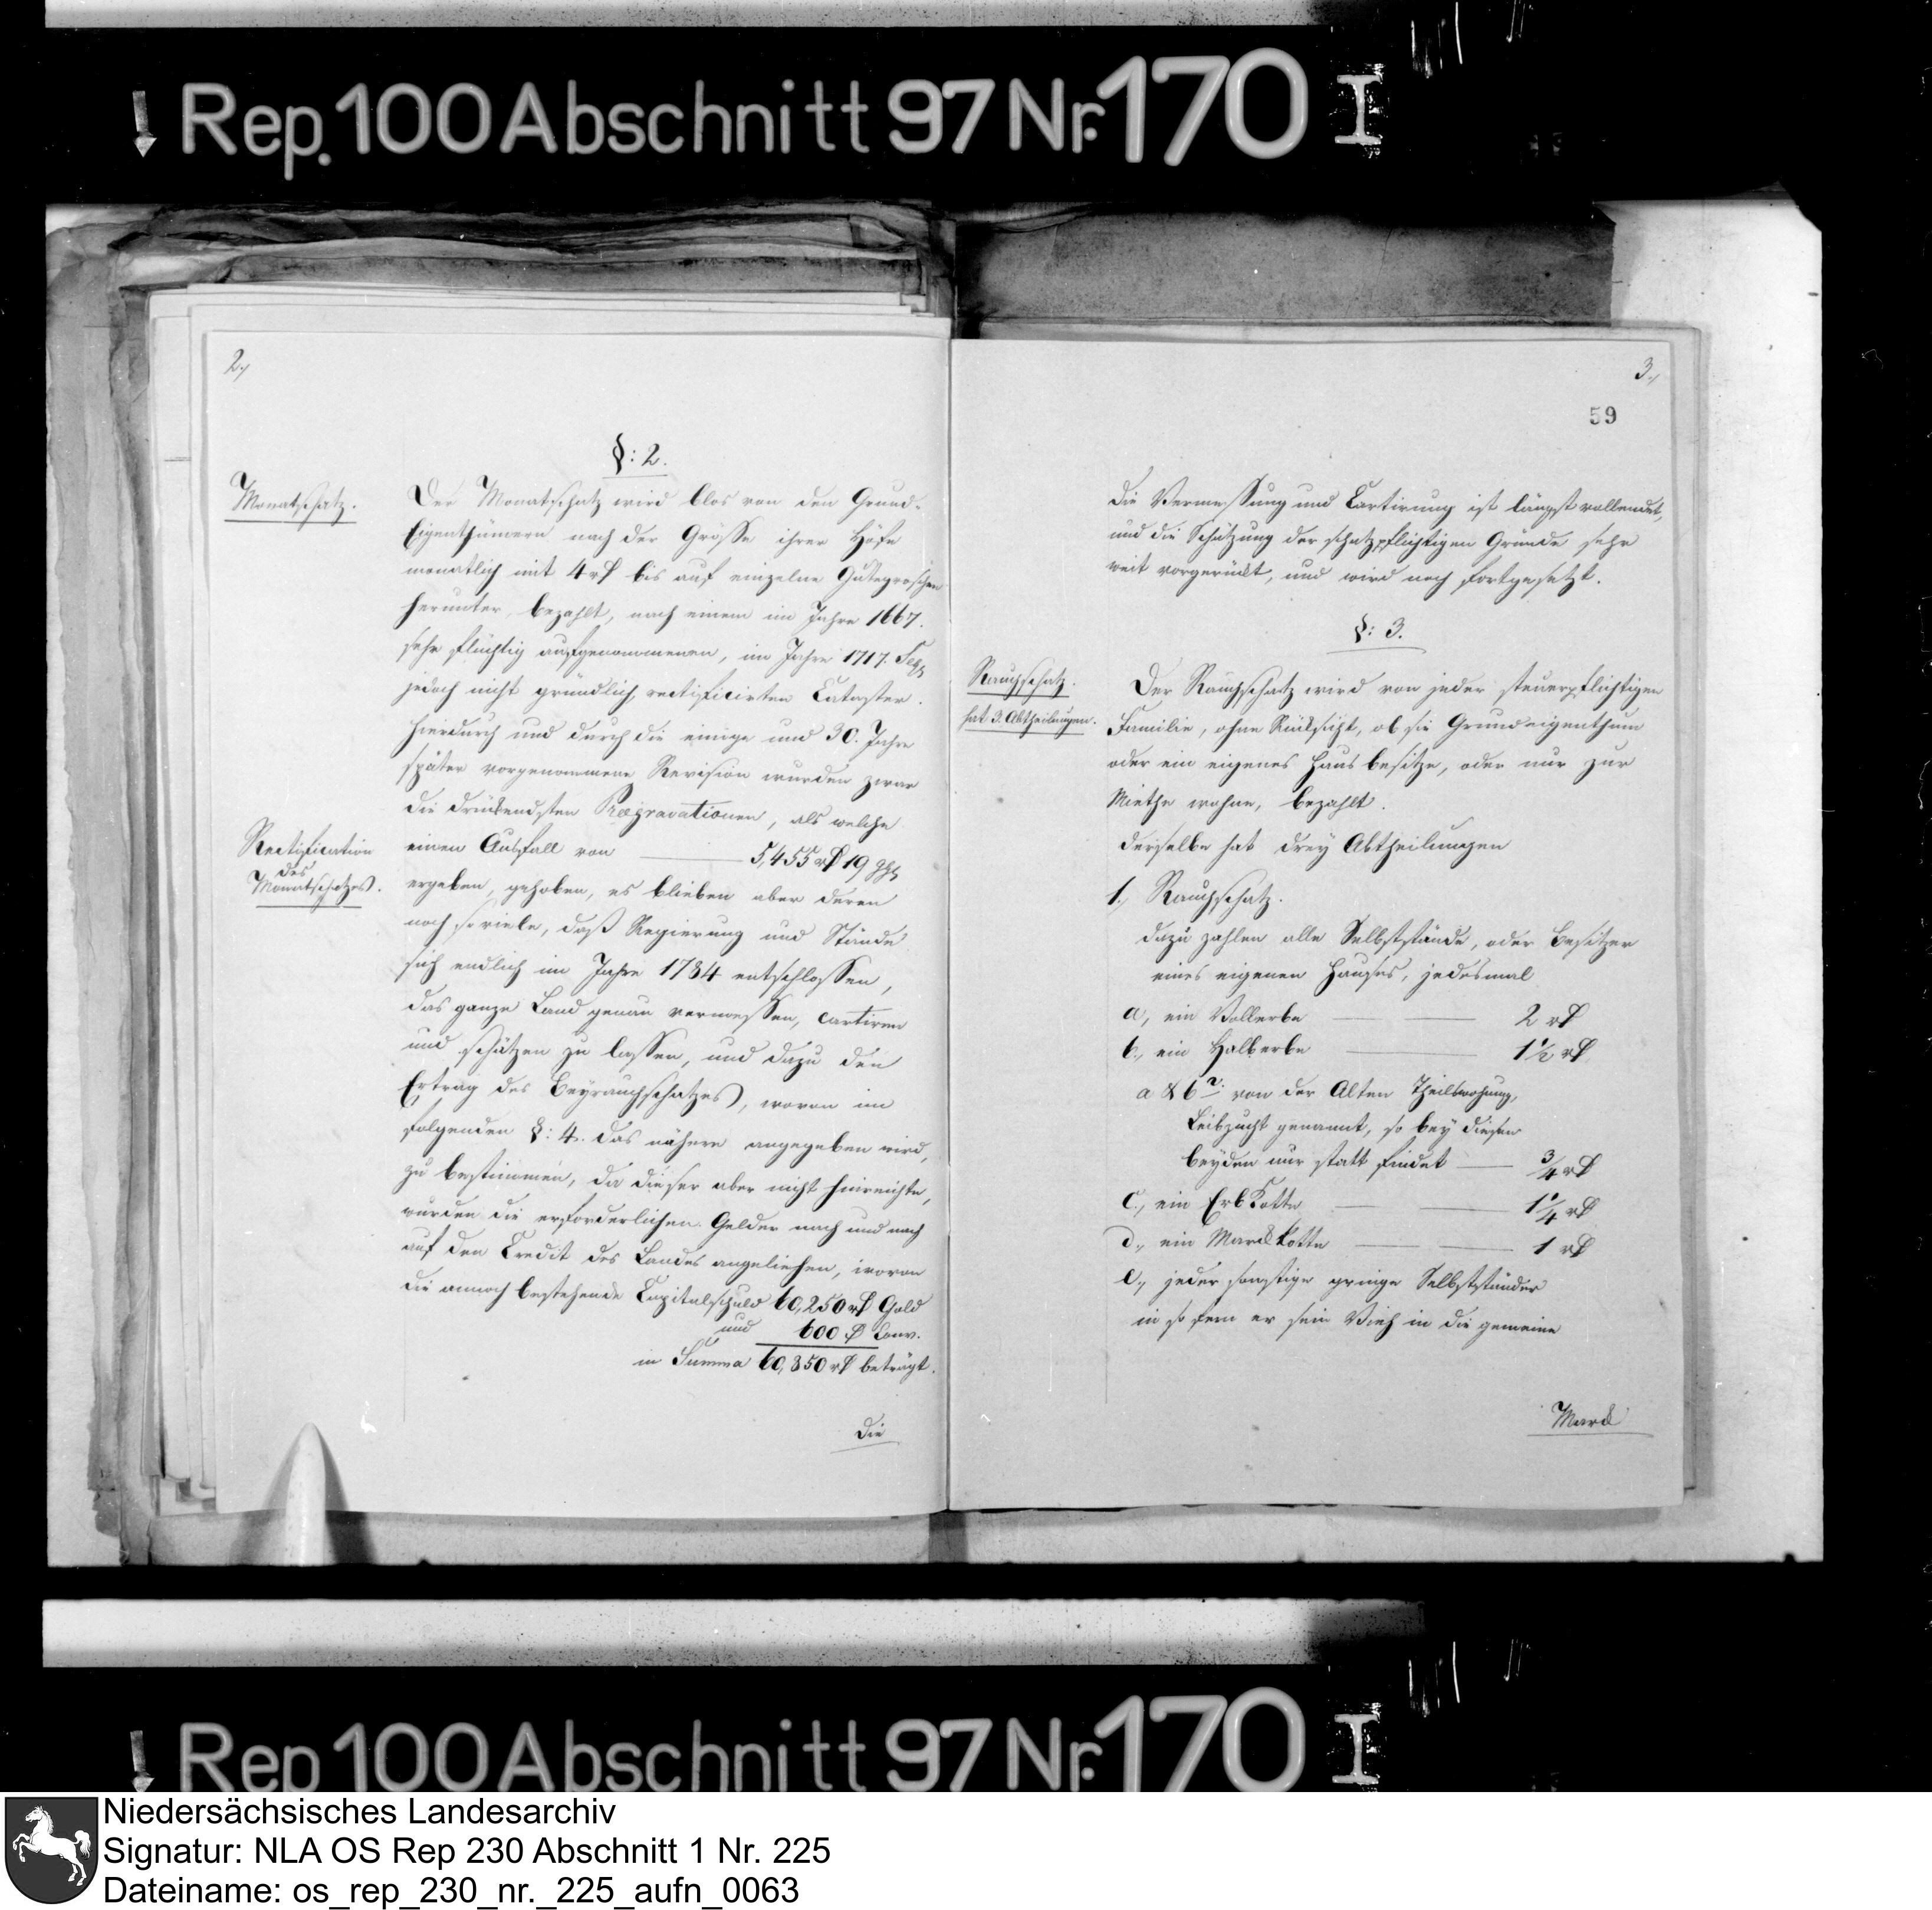 Rep. 100 Abschnitt 97 Nr. 170 I
2.,
§: 2.
Monatschatz.
Der Monatschatz wird blos von den Grund-
Eigenthümern nach der Grösse ihrer Höfe
monatlich mit 4 rt bis auf einzelne Gutegroschen
herunter, bezahlt, nach einem im Jahre 1667.
sehr flüchtig aufgenommenen, im Jahre 1717.
jedoch nicht gründlich, rectificirten Cataster.
Hierdurch und durch die einige und 30. Jahre
später vorgenommene Revision wurden zwar
die drückendsten Praegravationen, als welche
Rectification
des
Monatschatzes.
einen Ausfall von — 5,455 rt 19 ggl
ergeben, gehoben, es blieben aber deren
noch so viele, daß Regierung und Stände
sich endlich im Jahre 1784 entschlossen,
das ganze Land genau vermessen, cartiren
und schätzen zu lassen, und dazu den
Ertrag des Beyrauchschatzes, wovon im
folgenden §: 4. das nähere angegeben wird,
zu bestimmen, da dieser aber nicht hinreichte,
wurden die erforderlichen Gelder nach und nach
auf den Credit des Landes angeliehen, wovon
die annoch bestehende Capitalschuld 60,250 rt Gold
und 600 rt Conv.
in Summa 60,850 rt beträgt.
Die
3.,
59
die Vermessung und Cartirung ist längst vollendet,
und die Schätzung der schatzpflichtigen Gründe sehr
weit vorgerückt, und wird noch fortgesetzt.
§: 3.
Rauchschatz.
hat 3. Abtheilungen.
Der Rauchschatz wird von jeder steuerpflichtigen
Familie, ohne Rücksicht, ob sie Grundeigenthum
oder ein eigenes Haus besitze, oder nur zur
Miethe wohne, bezahlt.
Derselbe hat drey Abtheilungen
1., Rauchschatz.
dazu zahlen alle Selbststände, oder Besitzer
eines eigenen Hauses, jedesmal
a, ein Vollerbe — — 2 rt
b., ein Halberbe — 1 1/2 rt
a & b 2. von der Alten Theilswohnung,
Leibzucht genannt, so bey diesen
beyden nur statt findet — 3/4 rt
c., ein Erbkotte — — 1 1/4 rt
d., ein Marckkotte — — 1 rt
e., jeder sonstige geringe Selbstständer
in so fern er sein Vieh in die gemeine
Marck
Rep 100 Abschnitt 97 Nr. 170 I
Niedersächsisches Landesarchiv
Signatur: NLA OS Rep 230 Abschnitt 1 Nr. 225
Dateiname: os_rep_230_nr._225_aufn_0063